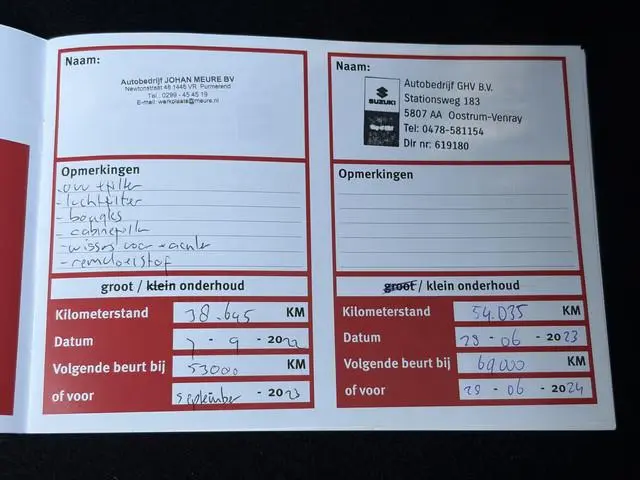 Naam:
Autobedrijf JOHAN MEURE BV
Newtonstraat 48 1446 VR Purmerend
Tel.: 0299 - 45 45 19
E-mail: werkplaats@meure.nl
Opmerkingen
- luchtfilter
- bougies
- cabinefilter
- wissers voor + achter
- remvloeistof
groot / klein onderhoud
Kilometerstand 38.645 KM
Datum 7 - 9 - 2022
Volgende beurt bij 53000 KM
of voor september - 2023
Naam:
SUZUKI
Autobedrijf GHV B.V.
Stationsweg 183
5807 AA Oostrum-Venray
Tel: 0478-581154
Dlr nr: 619180
Opmerkingen
groot / klein onderhoud
Kilometerstand 54.035 KM
Datum 29 - 06 - 2023
Volgende beurt bij 69000 KM
of voor 29 - 06 - 2024